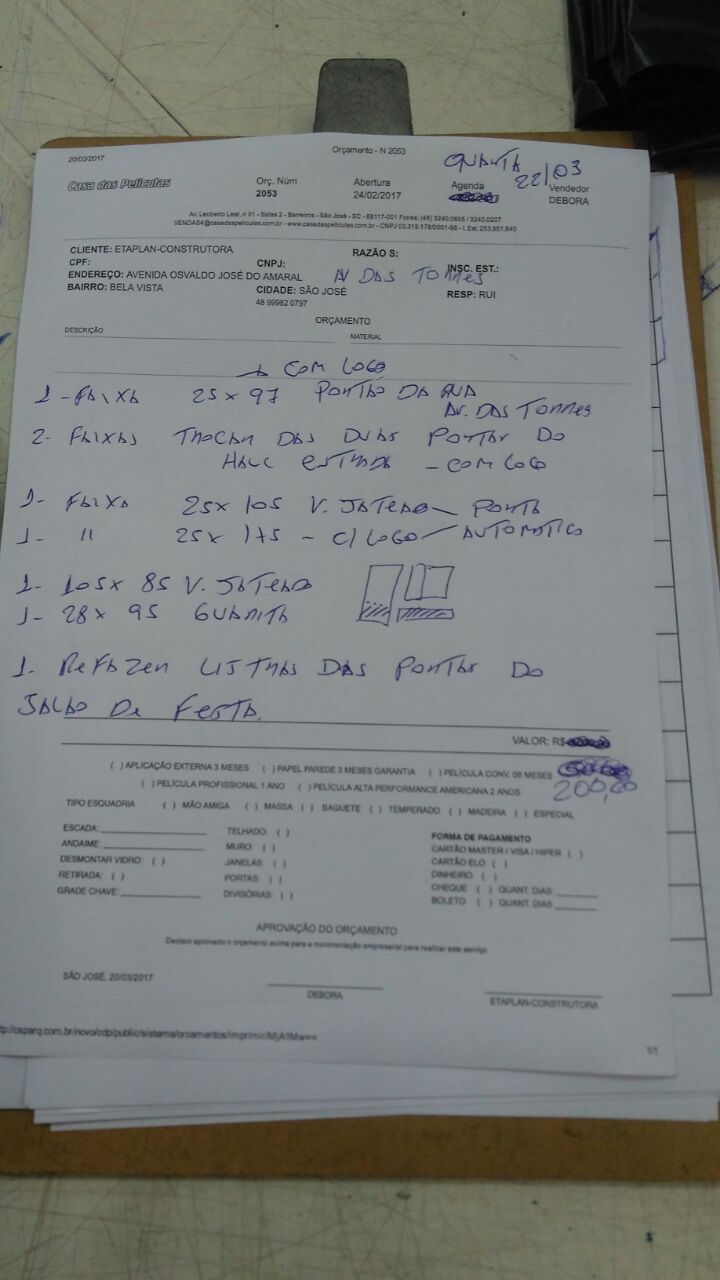 20/03/2017
Orçamento - N.2053
QUARTA 22/03
Casa das Películas
Orç. Núm
2053
Abertura
24/02/2017
Agenda
Vendedor
DEBORA
Av. Leoberto Leal, n 01 - Salas 2 - Barreiros - São José - SC - 88117-001 Fones: (48) 3240.0606 / 3240.0207
VENDAS4@casadaspeliculas.com.br - www.casadaspeliculas.com.br - CNPJ 03.319.178/0001-98 - I. Est. 253.951.640
CLIENTE: ETAPLAN-CONSTRUTORA
RAZÃO S:
CPF:
CNPJ:
INSC. EST.:
ENDEREÇO: AVENIDA OSVALDO JOSÉ DO AMARAL
AV DAS TORRES
BAIRRO: BELA VISTA
CIDADE: SÃO JOSÉ
RESP: RUI
48 99982 0797
ORÇAMENTO
DESCRIÇÃO
MATERIAL
COM LOGO
1 - FAIXA 25 x 97 PORTÃO DA RUA
AV. DAS TORRES
2 - FAIXAS TROCAR DAS DUAS PORTAS DO
HALL ESTRADA - COM LOGO
1 - FAIXA 25 x 105 V. JATEADO - PORTA
1 - 11 25 x 175 - C/ LOGO - AUTOMATICO
1 - 105 x 85 V. JATEADO
1 - 28 x 95 GUARITA
1 - REFAZER LISTRAS DAS PORTAS DO
SALAO DE FESTA.
VALOR: R$
( ) APLICAÇÃO EXTERNA 3 MESES ( ) PAPEL PAREDE 3 MESES GARANTIA ( ) PELÍCULA CONV. 06 MESES
200,00
( ) PELÍCULA PROFISSIONAL 1 ANO ( ) PELÍCULA ALTA PERFORMANCE AMERICANA 2 ANOS
TIPO ESQUADRIA ( ) MÃO AMIGA ( ) MASSA ( ) BAGUETE ( ) TEMPERADO ( ) MADEIRA ( ) ESPECIAL
ESCADA:
TELHADO: ( )
FORMA DE PAGAMENTO
ANDAIME:
MURO: ( )
CARTÃO MASTER / VISA / HIPER ( )
DESMONTAR VIDRO: ( )
JANELAS: ( )
CARTÃO ELO ( )
RETIRADA: ( )
PORTAS: ( )
DINHEIRO ( )
GRADE CHAVE:
DIVISÓRIAS: ( )
CHEQUE ( ) QUANT. DIAS
BOLETO ( ) QUANT. DIAS
APROVAÇÃO DO ORÇAMENTO
Declaro aprovado o orçamento acima para a movimentação empresarial para realizar este serviço
SÃO JOSÉ, 20/03/2017
DEBORA
ETAPLAN-CONSTRUTORA
tp://osparq.com.br/novo/cdp/public/sistema/orcamentos/imprimir/MjA1Mw==
1/1